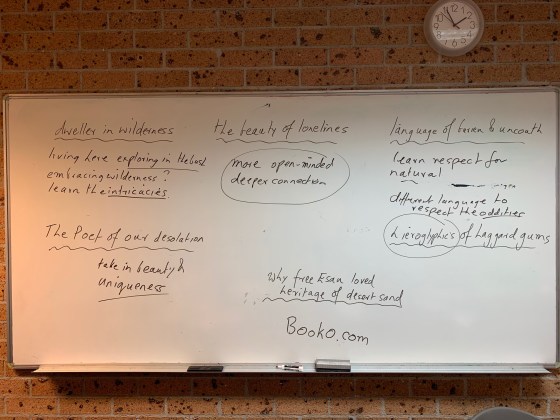 dweller in wilderness
living here exploring in the bush
embracing wilderness?
learn the intricacies
the beauty of lonelines
more open-minded
deeper connection
language of baran & uncouth
learn respect for
natural
different language to
respect the oddities
hieroglyphics of haggard gums
The Poet of our desolation
take in beauty &
uniqueness
Why free Esau loved
heritage of desert sand
Booko.com
12
1
2
3
4
5
6
7
8
9
10
11